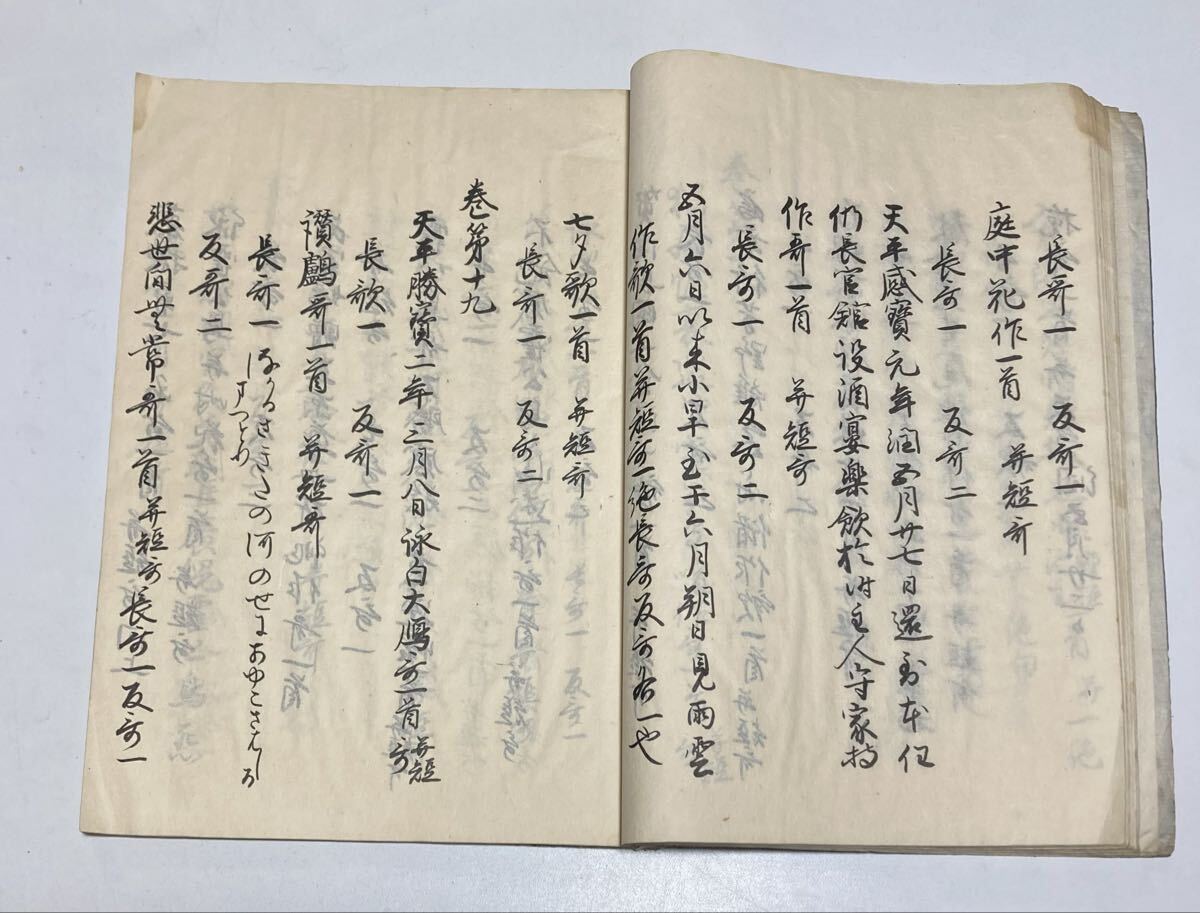 長哥一 反哥一
庭中花作一首 并短哥
長哥一 反哥二
天平感寶元年潤五月廿七日還到本任
仍長官舘設酒宴樂飲於時主人守家持
作哥一首 并短哥
長哥一 反哥二
五月六日以来小旱至于六月朔日見雨雲
作歌一首并短哥一絶長哥反哥各一也
七夕歌一首 并短哥
長哥一 反哥二
巻第十九
天平勝寳二年三月八日詠白大鷹哥一首并短哥
長歌一 反哥一
讃鸕哥一首 并短哥
長哥一 なかるさきたの河のせにあゆこさはしる
まつとり
反哥二
悲世間無常哥一首并短哥長哥一反哥一